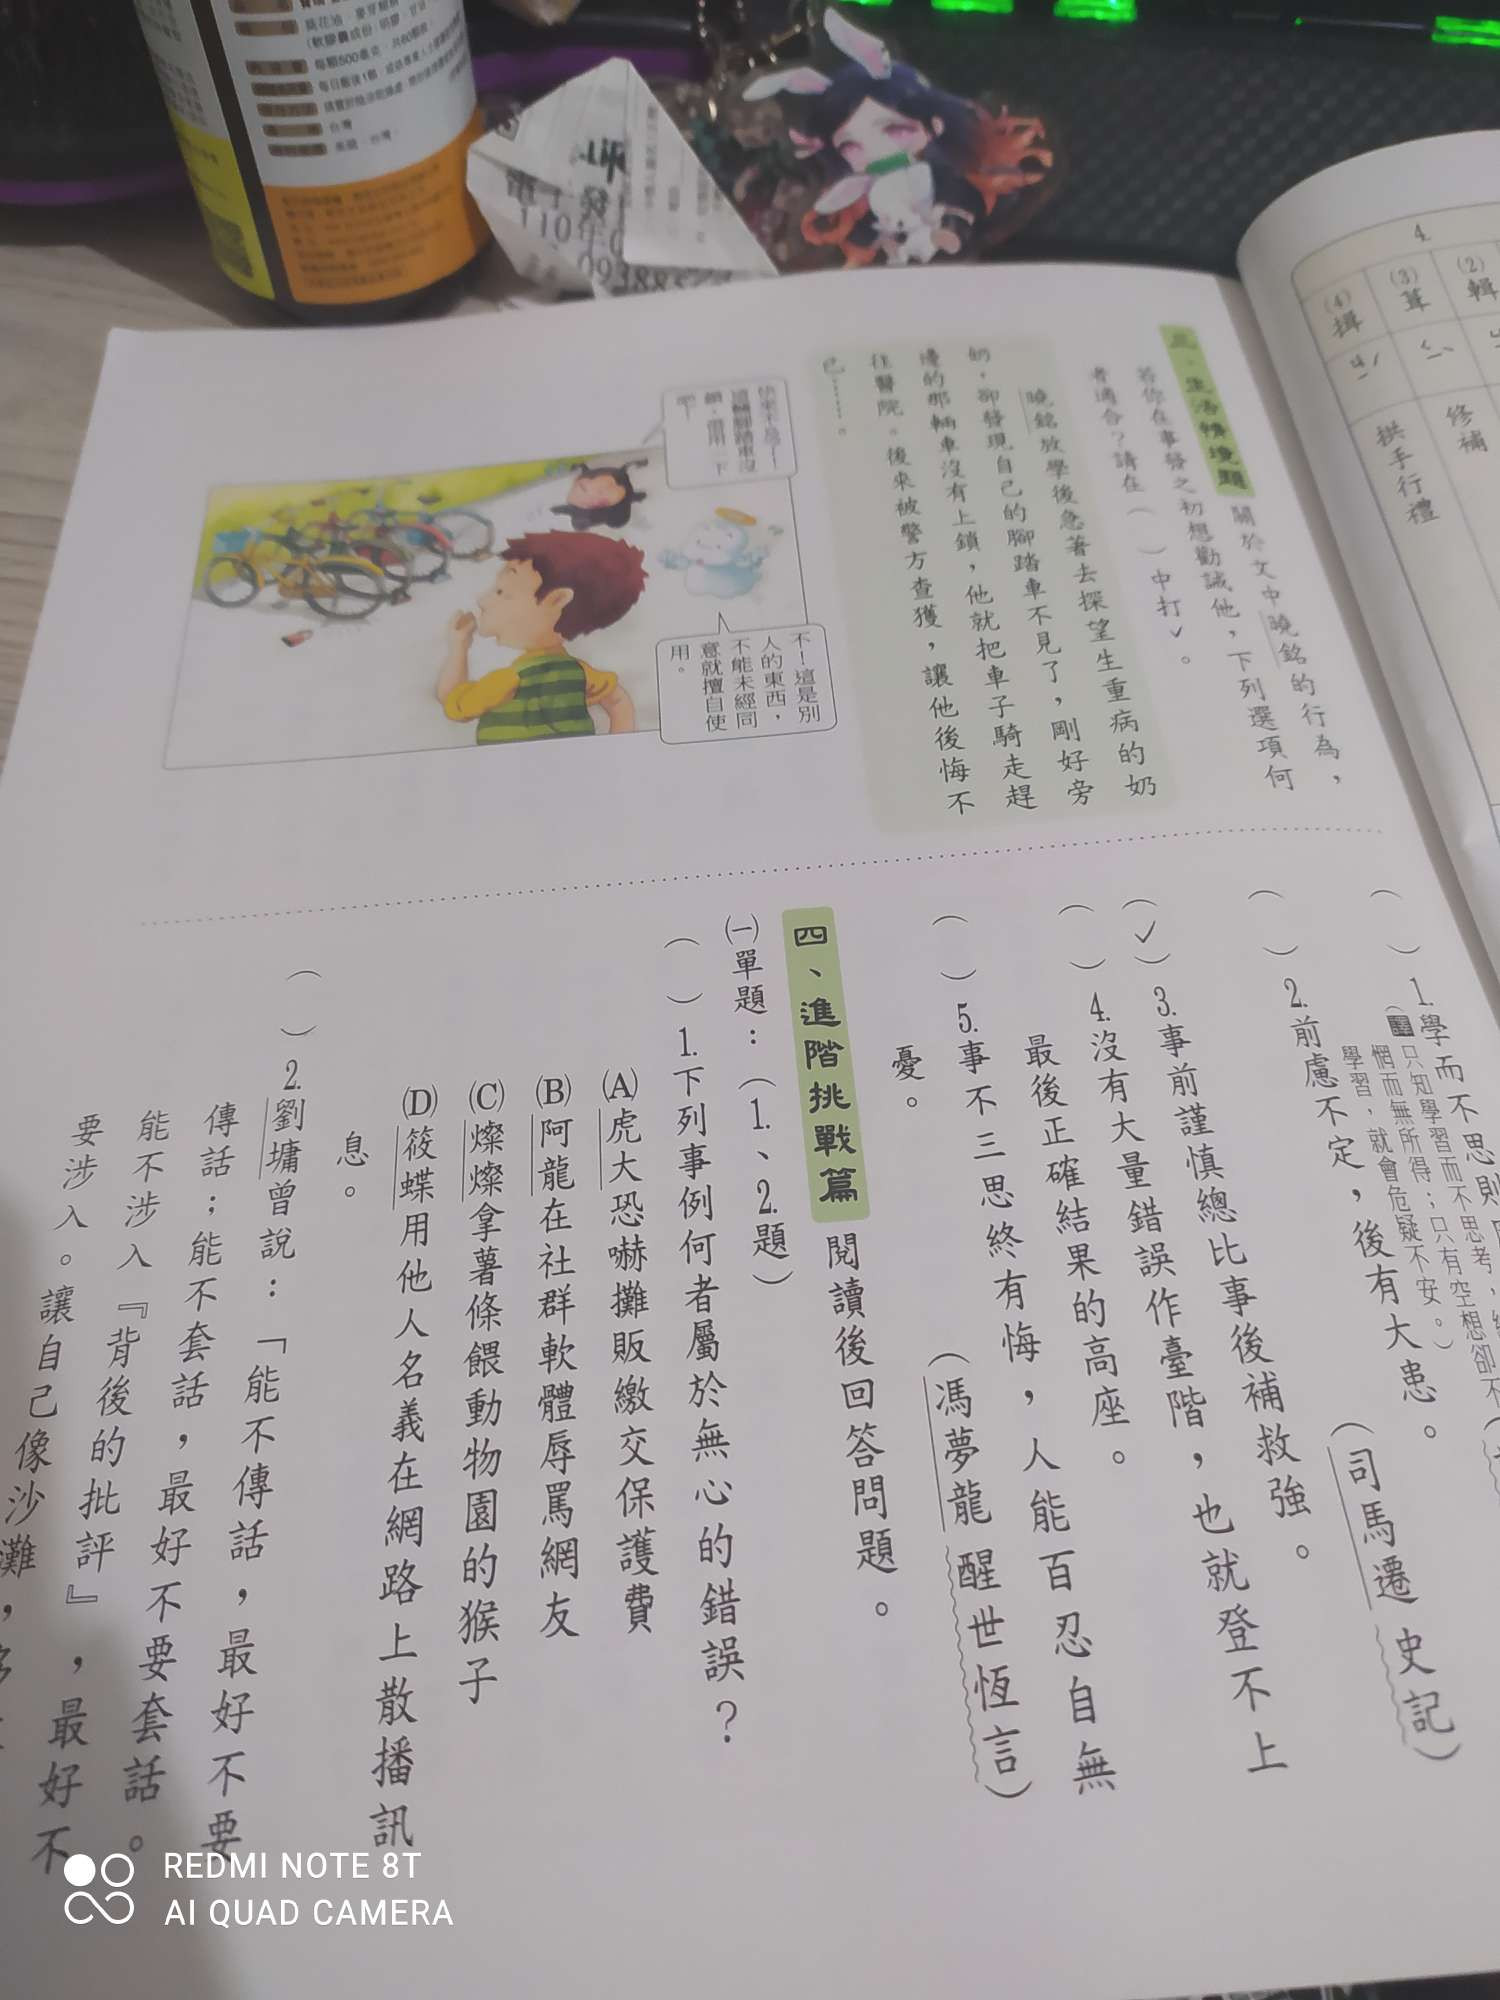 4.
(2)
輯
(3)
葺
(4)
揖
修補
拱手行禮
三、生活情境題
關於文中曉銘的行為，
若你在事發之初想勸誡他，下列選項何
者適合？請在（ ）中打✓。
曉銘放學後急著去探望生重病的奶
奶，卻發現自己的腳踏車不見了，剛好旁
邊的那輛車沒有上鎖，他就把車子騎走趕
往醫院。後來被警方查獲，讓他後悔不
已……。
快來不及了！
這輛腳踏車沒
鎖，借用一下
吧！
不！這是別
人的東西，
不能未經同
意就擅自使
用。
（ ）1.學而不思則
只知學習而不思考，
惘而無所得；只有空想卻不
學習，就會危疑不安。）
（ ）2.前慮不定，後有大患。（司馬遷 史記）
（✓）3.事前謹慎總比事後補救強。
（ ）4.沒有大量錯誤作臺階，也就登不上
最後正確結果的高座。
（ ）5.事不三思終有悔，人能百忍自無
憂。（馮夢龍 醒世恆言）
四、進階挑戰篇
閱讀後回答問題。
㈠單題：（1.、2.題）
（ ）1.下列事例何者屬於無心的錯誤？
(A)虎大恐嚇攤販繳交保護費
(B)阿龍在社群軟體辱罵網友
(C)燦燦拿薯條餵動物園的猴子
(D)筱蝶用他人名義在網路上散播訊
息。
（ ）2.劉墉曾說：「能不傳話，最好不要
傳話；能不套話，最好不要套話。
能不涉入『背後的批評』，最好不
要涉入。讓自己像沙灘，
每顆500毫克，共60顆
台灣
美國、台灣
Life
110年
REDMI NOTE 8T
AI QUAD CAMERA